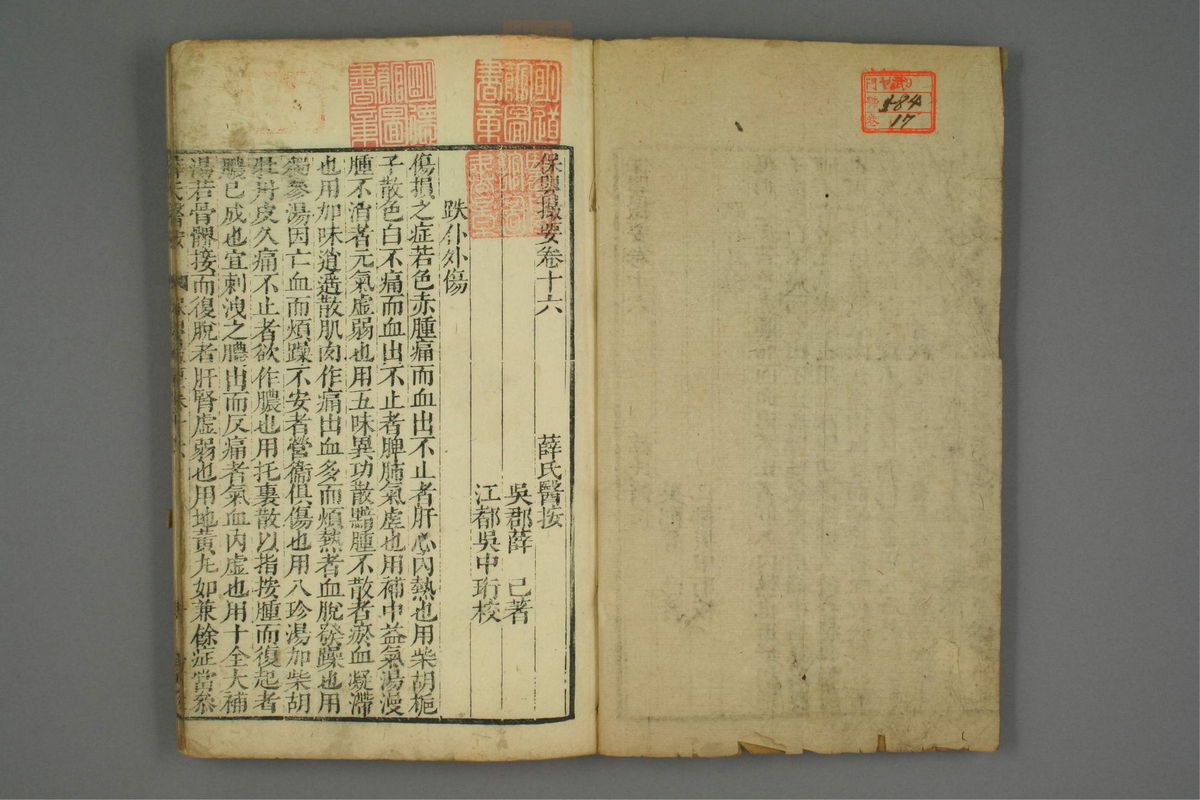 184
17
保嬰撮要卷十六
薛氏醫按
吳郡薛 己著
江都吳中珩校
跌仆外傷
傷損之症若色赤腫痛而血出不止者肝心內熱也用柴胡梔
子散色白不痛而血出不止者脾肺氣虛也用補中益氣湯漫
腫不消者元氣虛弱也用五味異功散黯腫不散者瘀血凝滯
也用加味逍遥散肌肉作痛出血多而煩熱者血脫發躁也用
獨參湯因亡血而煩躁不安者營衞俱傷也用八珍湯加柴胡
牡丹皮久痛不止者欲作膿也用托裏散以指按腫而復起者
膿已成也宜刺洩之膿出而反痛者氣血內虛也用十全大補
湯若骨髎接而復脫者肝腎虛弱也用地黃丸如兼餘症當叅